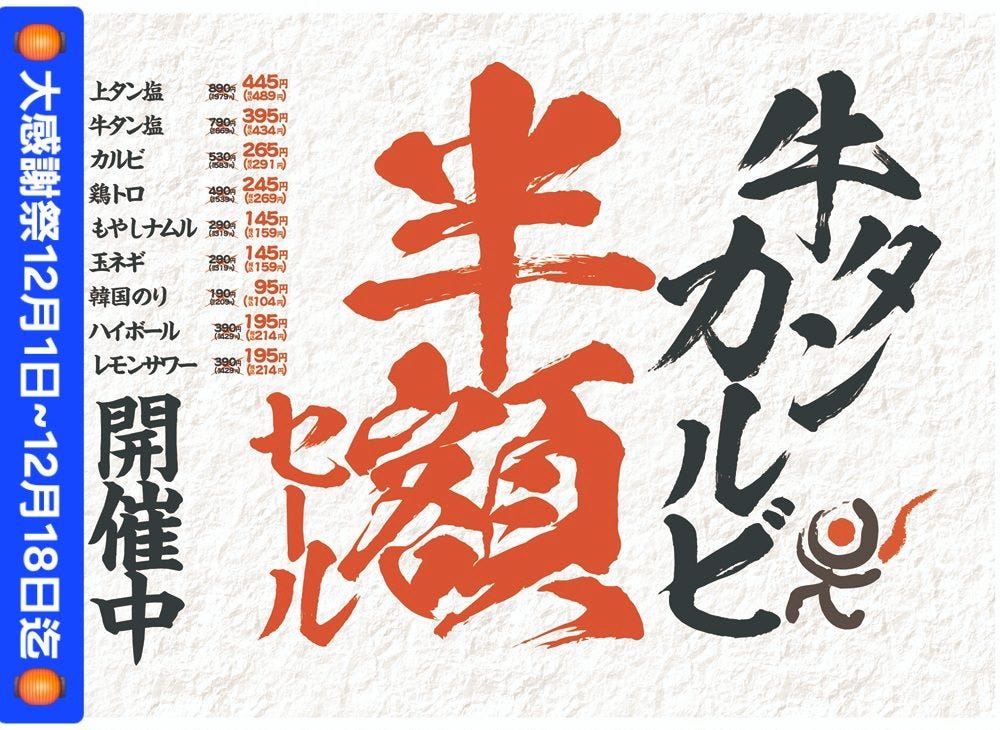 牛タン
カルビ
半額
セール
上タン塩 890円(税込979円) 445円(税込489円)
牛タン塩 790円(税込869円) 395円(税込434円)
カルビ 530円(税込583円) 265円(税込291円)
鶏トロ 490円(税込539円) 245円(税込269円)
もやしナムル 290円(税込319円) 145円(税込159円)
玉ネギ 290円(税込319円) 145円(税込159円)
韓国のり 190円(税込209円) 95円(税込104円)
ハイボール 390円(税込429円) 195円(税込214円)
レモンサワー 390円(税込429円) 195円(税込214円)
開催中
大感謝祭12月1日~12月18日迄